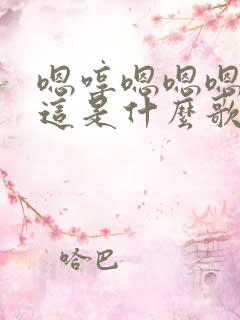 嗯哼嗯嗯嗯
這是什麼歌
哈巴